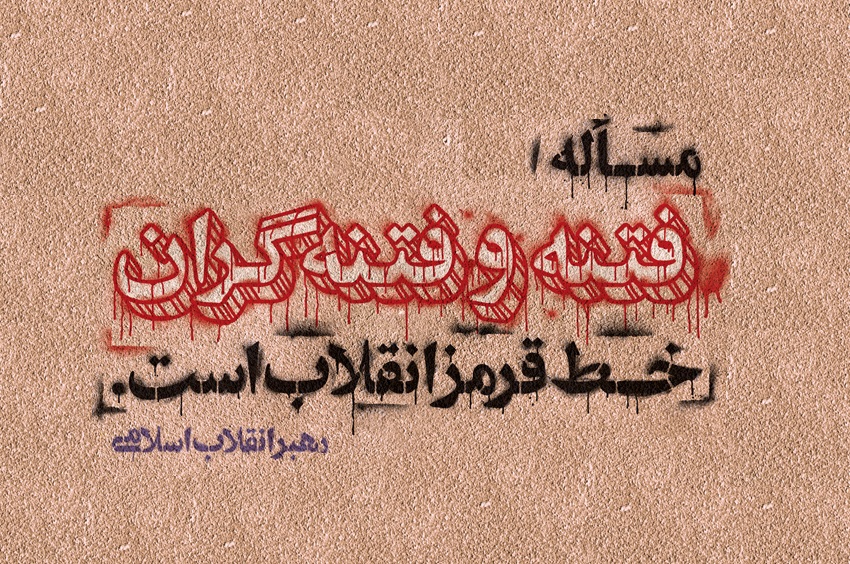 مسأله ا
فتنه و فتنه‌گران
خط قرمز انقلاب است.
رهبر انقلاب اسلامی